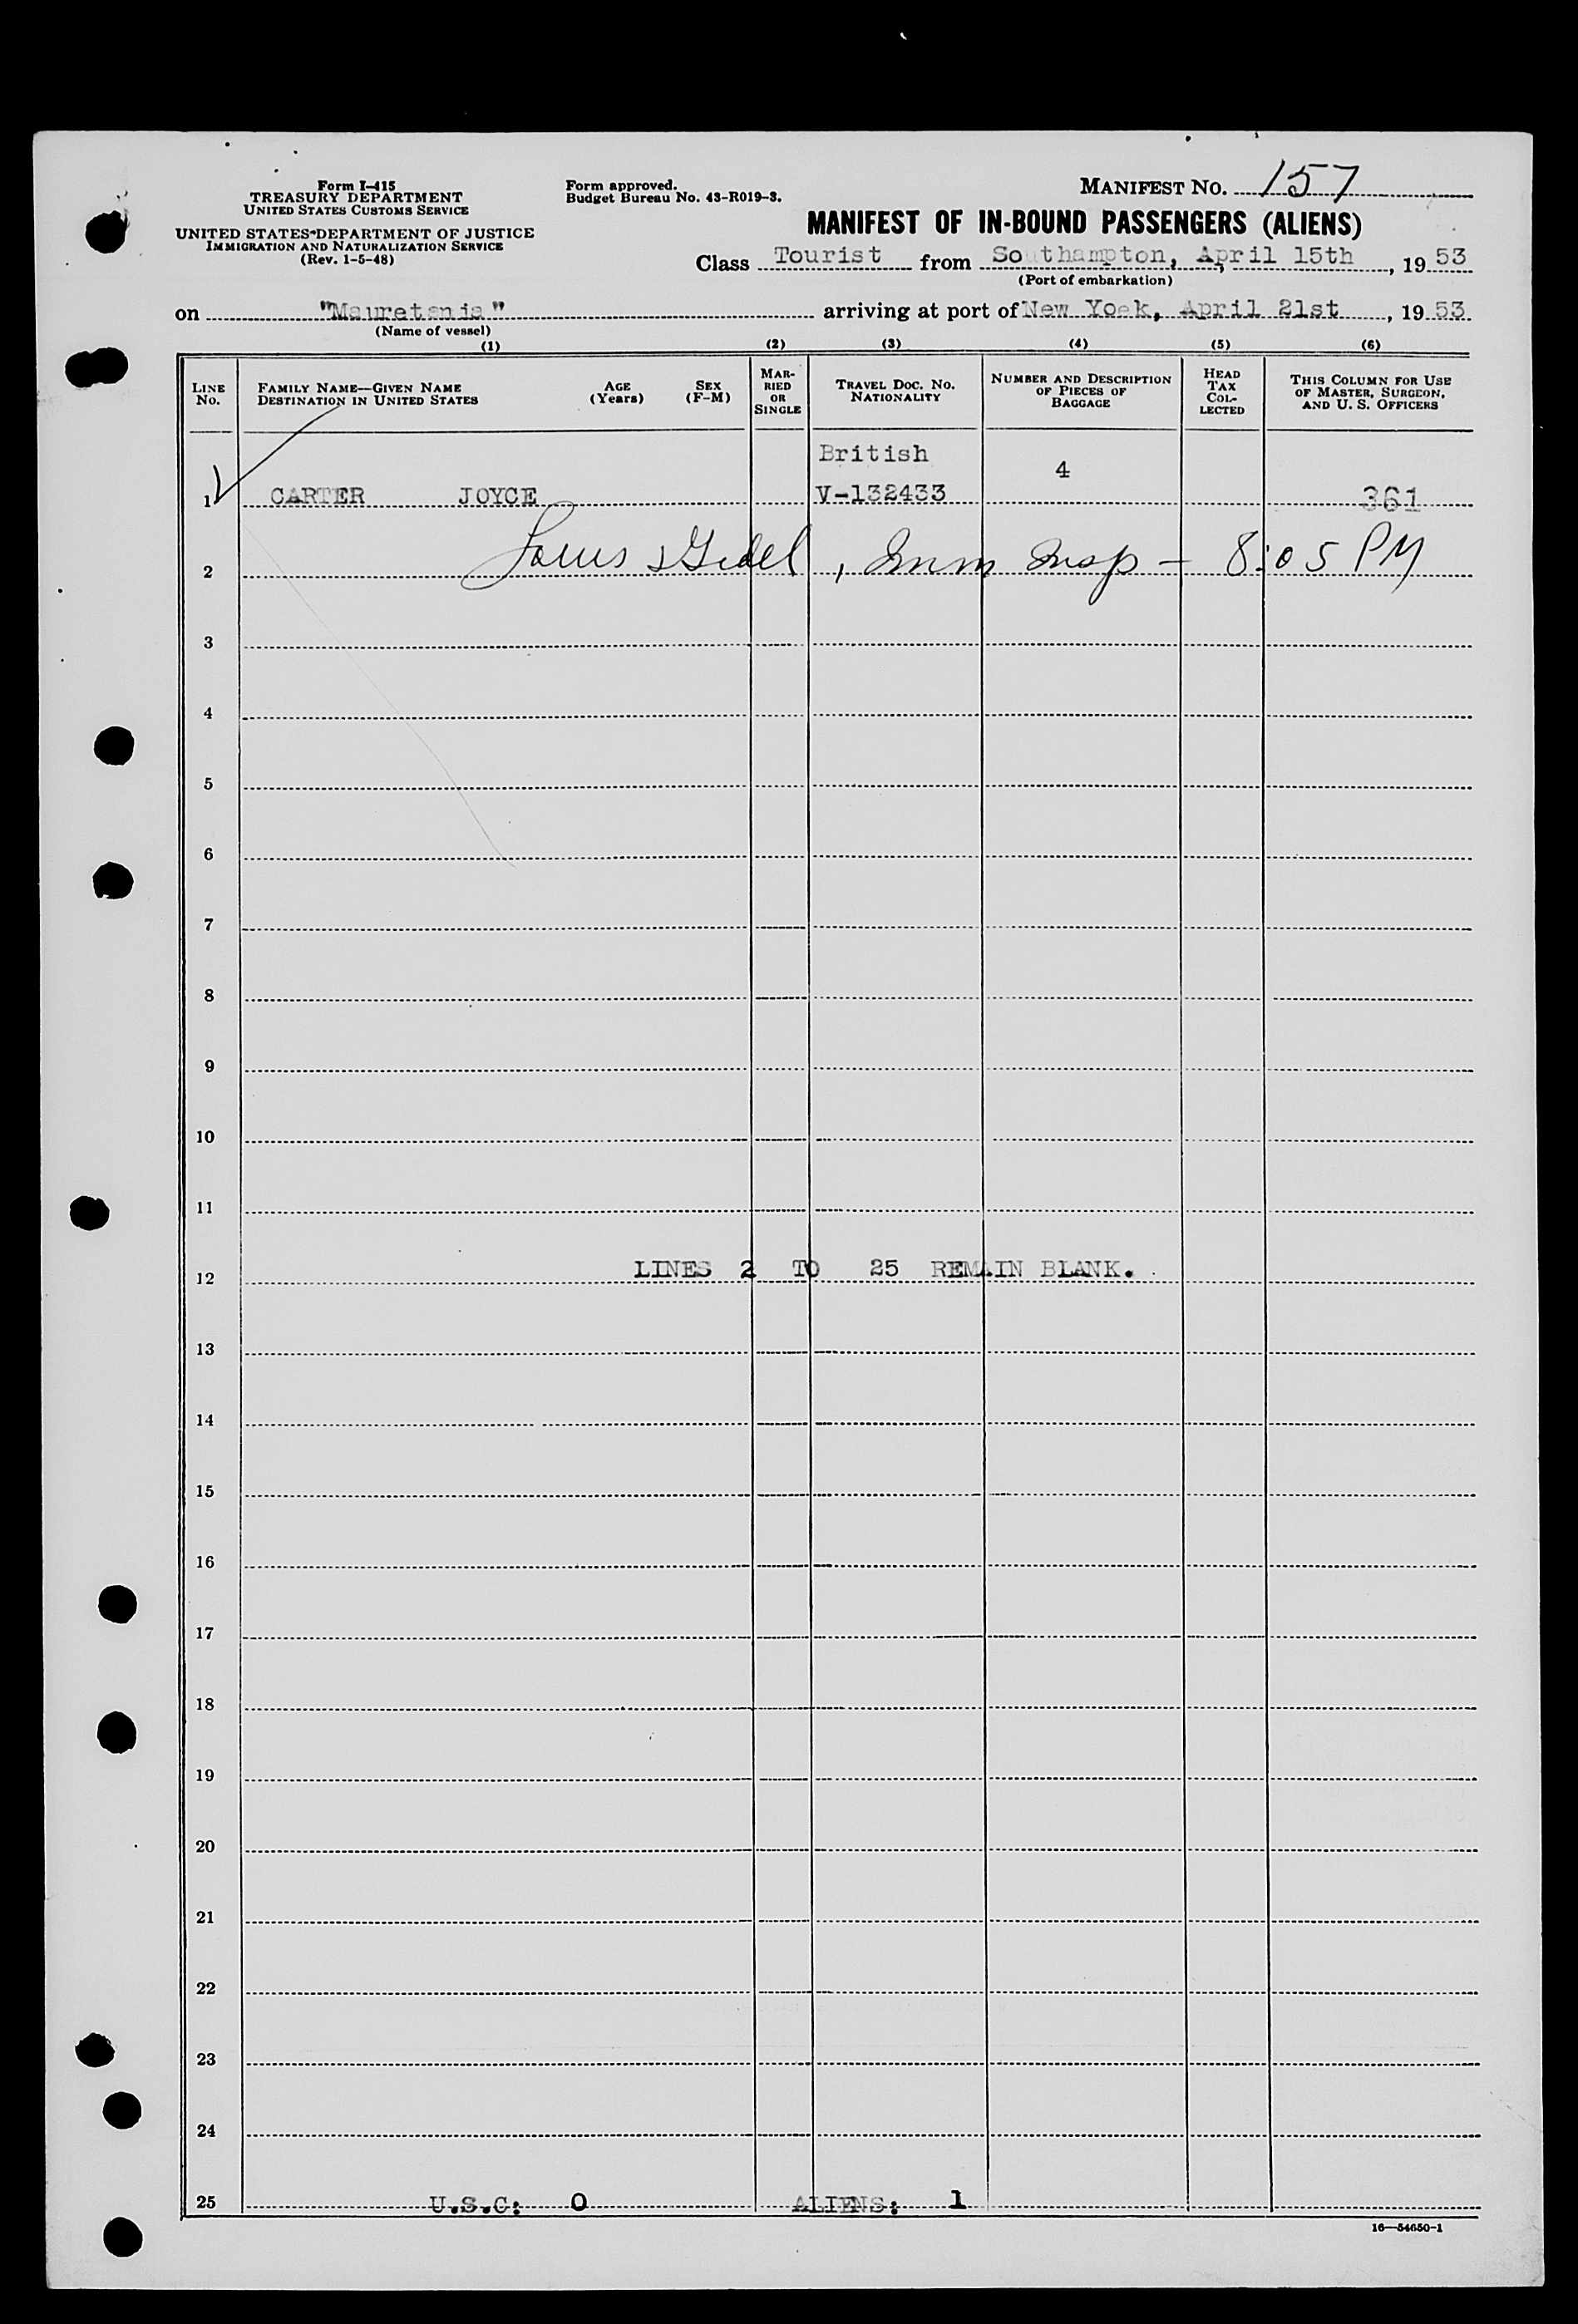 Form I-415
TREASURY DEPARTMENT
UNITED STATES CUSTOMS SERVICE
UNITED STATES DEPARTMENT OF JUSTICE
IMMIGRATION AND NATURALIZATION SERVICE
(Rev. 1-5-48)
Form approved.
Budget Bureau No. 43-R019-3.
MANIFEST NO. 157
MANIFEST OF IN-BOUND PASSENGERS (ALIENS)
Class Tourist from Southampton, April 15th, 19 53
(Port of embarkation)
on "Mauretania" arriving at port of New Yoek, April 21st, 19 53
(Name of vessel)
(1) (2) (3) (4) (5) (6)
LINE NO.
FAMILY NAME—GIVEN NAME
DESTINATION IN UNITED STATES
AGE (Years)
SEX (F-M)
MARRIED OR SINGLE
TRAVEL DOC. NO.
NATIONALITY
NUMBER AND DESCRIPTION OF PIECES OF BAGGAGE
HEAD TAX COLLECTED
THIS COLUMN FOR USE OF MASTER, SURGEON, AND U. S. OFFICERS
British
4
1 CARTER JOYCE V-132433 361
2 , Imm Insp - 8:05 PM
3
4
5
6
7
8
9
10
11
12 LINES 2 TO 25 REMAIN BLANK.
13
14
15
16
17
18
19
20
21
22
23
24
25 U.S.C: 0 ALIENS: 1
16—54650-1